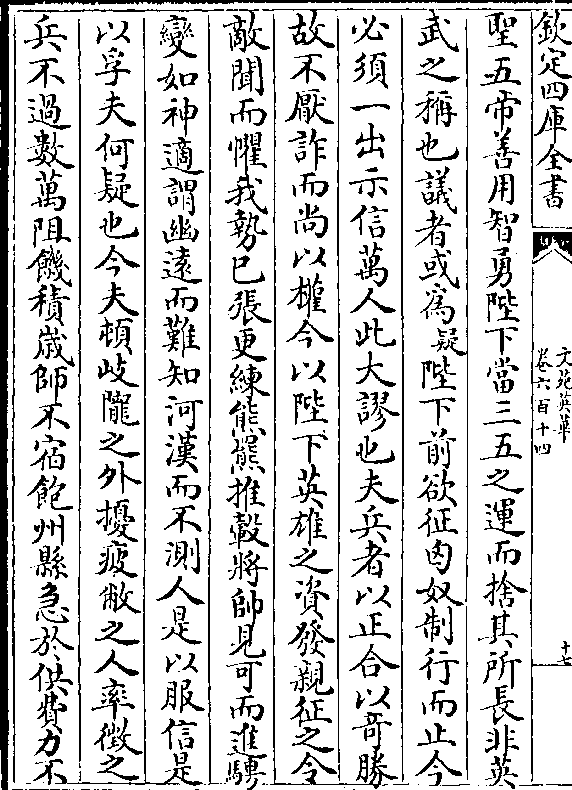 欽定四庫全書
文苑英華
卷六百十四
十七
聖五帝善用智勇陛下當三五之運而捨其所長非英
武之稱也議者或為疑陛下前欲征匈奴制行而止今
必須一出示信萬人此大謬也夫兵者以正合以竒勝
故不厭詐而尚以權今以陛下英雄之資發親征之令
敵聞而懼我勢已張更練熊羆推轂將帥見可而進騁
變如神適謂幽遠而難知河漢而不測人是以服信是
以孚夫何疑也今夫頓岐隴之外擾疲敝之人率徴之
兵不過數萬阻饑積嵗師不宿飽州縣急於供費力不